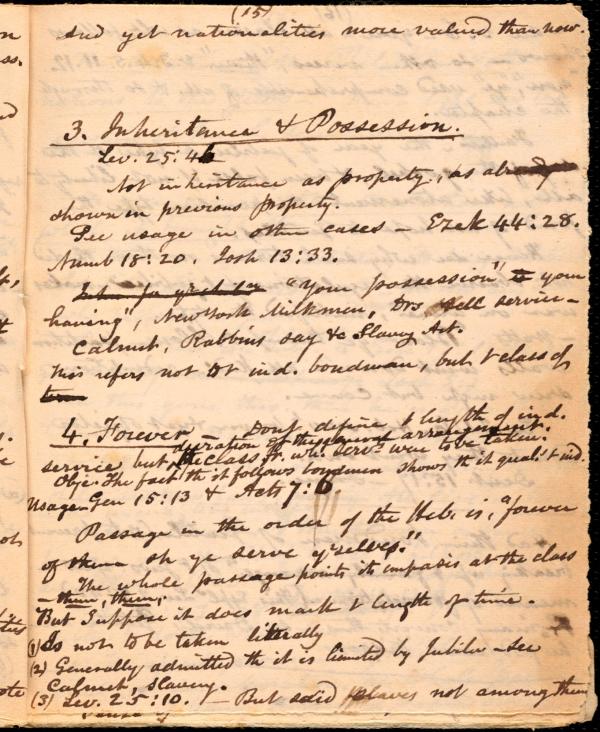 (15)
And yet nationalities more valued than now.
3. Inheritance & Possession.
Lev. 25:46
Not inheritance as property, as already
shown in previous property.
See usage in other cases – Ezek 44:28.
Numb 18:20. Josh 13:33.
"Your possession" your
having", New York Milkmen, Drs sell service –
Calmet, Rabbins say &c Slavery Art.
This refers not to t ind. bondman, but t class of
4. Forever – Dont define t length of ind.
duration of the general arrangement.
service but the class fr. wh. serv.s were to be taken.
Obje. The fact th it follows bondmen shows th it quali. t ind.
Usage – Gen 15:13 & Acts 7:6.
Passage in the order of the Heb. is, "forever
of them sh ye serve y'selves."
The whole passage points its empasis at the class
– them, them;
But Suppose it does mark t length of time.
(1) Is not to be taken literally
(2) Generally admitted th it is limited by Jubilee – See
Calmet, Slavery.
(3) Lev. 25:10. – But said slaves not among them